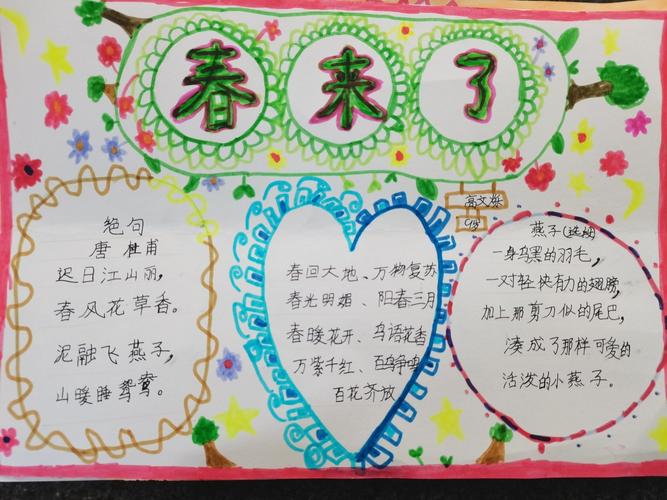 春来了
绝句
唐 杜甫
迟日江山丽，
春风花草香。
泥融飞燕子，
山暖睡鸳鸯。
春回大地、万物复苏
春光明媚、阳春三月
春暖花开、鸟语花香
万紫千红、百鸟争鸣
百花齐放
高文
燕子(选段)
一身乌黑的羽毛，
一对轻快有力的翅膀，
加上那剪刀似的尾巴，
凑成了那样可爱的
活泼的小燕子。